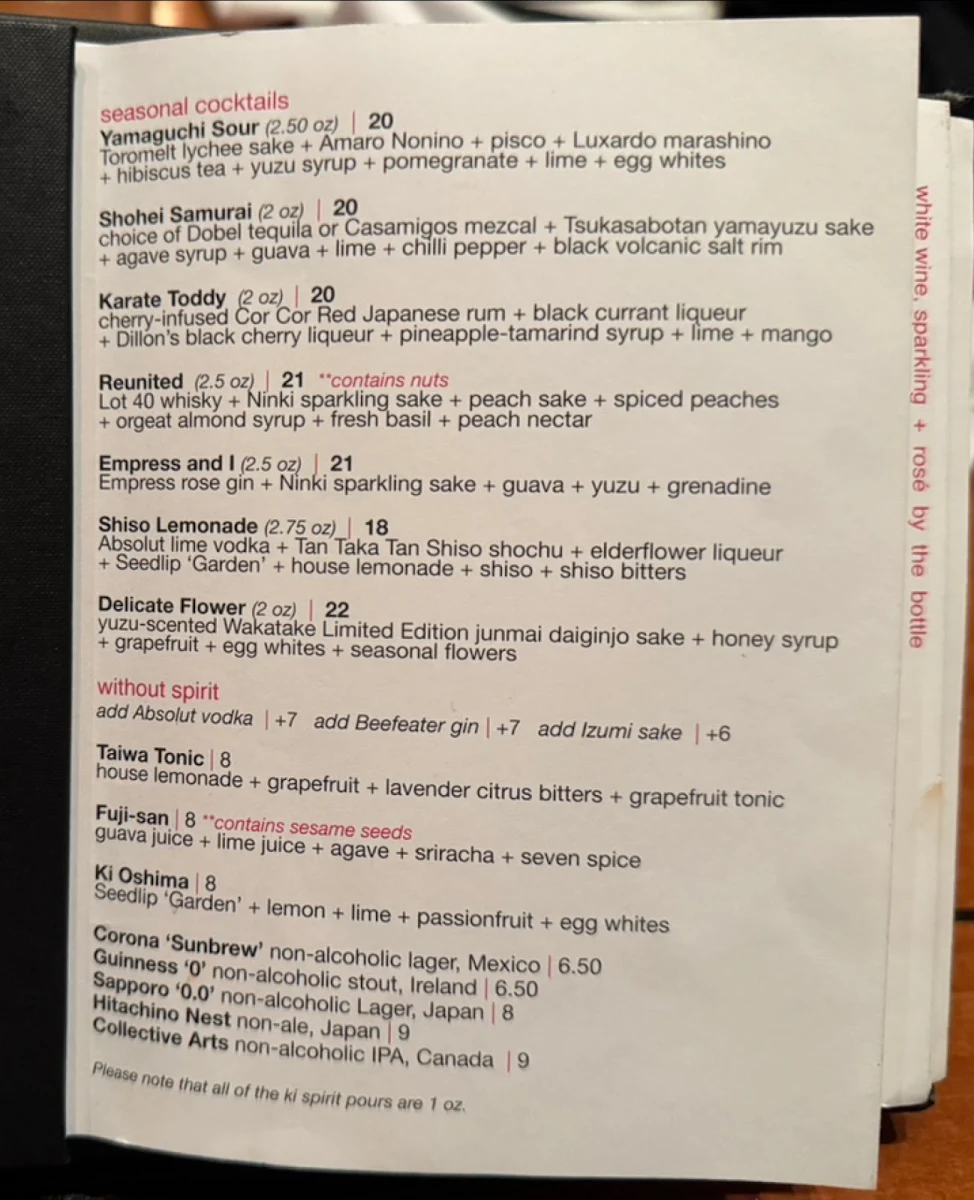 seasonal cocktails
Yamaguchi Sour (2.50 oz) | 20
Toromelt lychee sake + Amaro Nonino + pisco + Luxardo marashino
+ hibiscus tea + yuzu syrup + pomegranate + lime + egg whites
Shohei Samurai (2 oz) | 20
choice of Dobel tequila or Casamigos mezcal + Tsukasabotan yamayuzu sake
+ agave syrup + guava + lime + chilli pepper + black volcanic salt rim
Karate Toddy (2 oz) | 20
cherry-infused Cor Cor Red Japanese rum + black currant liqueur
+ Dillon's black cherry liqueur + pineapple-tamarind syrup + lime + mango
Reunited (2.5 oz) | 21 **contains nuts
Lot 40 whisky + Ninki sparkling sake + peach sake + spiced peaches
+ orgeat almond syrup + fresh basil + peach nectar
Empress and I (2.5 oz) | 21
Empress rose gin + Ninki sparkling sake + guava + yuzu + grenadine
Shiso Lemonade (2.75 oz) | 18
Absolut lime vodka + Tan Taka Tan Shiso shochu + elderflower liqueur
+ Seedlip 'Garden' + house lemonade + shiso + shiso bitters
Delicate Flower (2 oz) | 22
yuzu-scented Wakatake Limited Edition junmai daiginjo sake + honey syrup
+ grapefruit + egg whites + seasonal flowers
without spirit
add Absolut vodka | +7 add Beefeater gin | +7 add Izumi sake | +6
Taiwa Tonic | 8
house lemonade + grapefruit + lavender citrus bitters + grapefruit tonic
Fuji-san | 8 **contains sesame seeds
guava juice + lime juice + agave + sriracha + seven spice
Ki Oshima | 8
Seedlip 'Garden' + lemon + lime + passionfruit + egg whites
Corona 'Sunbrew' non-alcoholic lager, Mexico | 6.50
Guinness '0' non-alcoholic stout, Ireland | 6.50
Sapporo '0.0' non-alcoholic Lager, Japan | 8
Hitachino Nest non-ale, Japan | 9
Collective Arts non-alcoholic IPA, Canada | 9
Please note that all of the ki spirit pours are 1 oz.
white wine, sparkling + rosé by the bottle